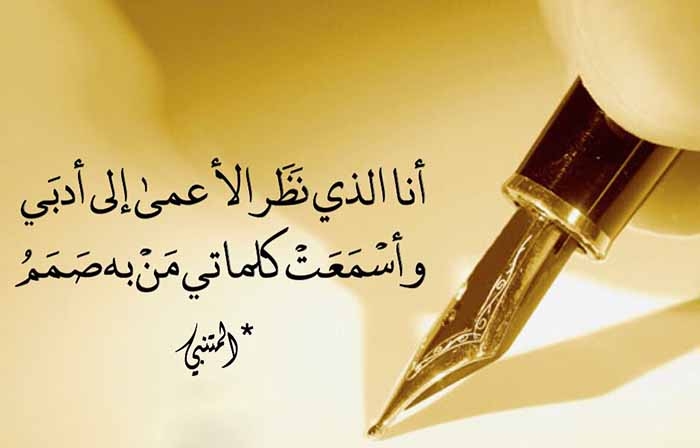 أنا الذي نَظَر الأعمىٰ إلى أدبَي
وأسْمَعَتْ كلماتي مَنْ به صَمَمُ
*المتنبي